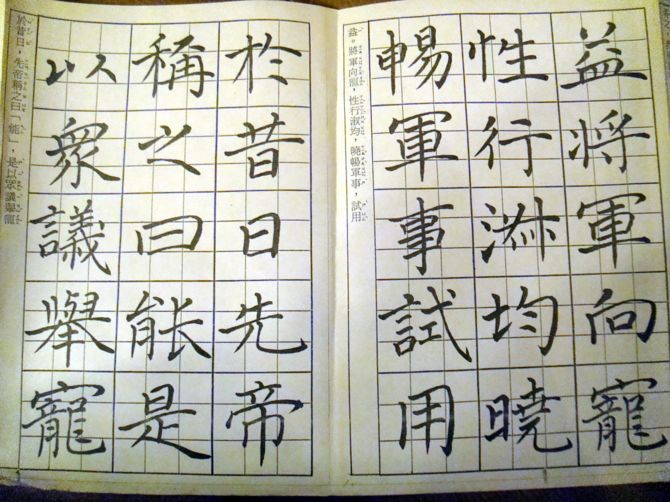 益將軍向寵
性行淑均曉
暢軍事試用
益。將軍向寵,性行淑均,曉暢軍事,試用
於昔日先帝
稱之曰能是
以衆議舉寵
於昔日,先帝稱之曰「能」,是以眾議舉寵